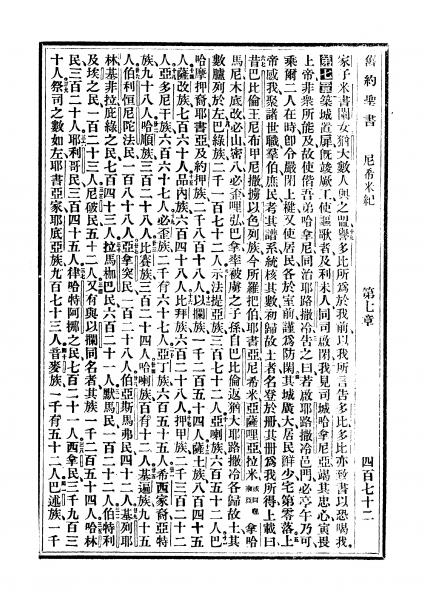 舊約聖書 尼希米紀 第七章 四百七十二
家子米書蘭女猶大數人與之盟譽多比所爲於我前以我所言告多比多比亦致書以恐嚇我
第七章築城置扉旣竣厥工使謳歌者及利未人同司啟閉我見司城哈拿尼亞竭其忠心寅畏
上帝非衆所能及故使偕吾弟哈拿尼同治耶路撒冷告之曰若啟耶路撒冷邑門必亭午乃可
乘爾二人在時卽令嚴閉上鍵又使居民各於室前謹爲防閑其城廣大居民鮮少宅第零落上
帝感我聚諸世職羣伯庶民考其譜系統核其數初歸故土者名登於册其册爲我所得上載曰
昔巴比倫王尼布甲尼撒擄以色列族今所羅把伯耶書亞尼希米亞薩哩亞拉米拿哈
馬尼木底改必山密八必歪哩弘巴拿率被虜之子孫自巴比倫返猶大耶路撒冷各歸故土其
數臚列於左巴綠族二千一百七十二人示法提亞族三百七十二人亞喇族六百五十二人巴
哈摩押裔耶書亞及約押族二千八百十八人以攔族一千二百五十四人薩土族八百四十五
人薩改族七百六十人品內族六百四十八人比拜族六百二十八人押甲族二千三百二十二
人亞多尼干族六百六十七人必歪族二千有六十七人亞丁族六百五十五人希西家裔亞特
族九十八人哈順族三百二十八人比賽族三百二十四人哈喇族百有十二人基遍族九十五
人伯利恒尼陀法民一百八十八人亞拿突民一百二十八人伯亞斯馬弗民四十二人基列耶
林基非拉庇綠之民七百四十三人拉馬枷巴民六百二十一人默馬民一百二十二人伯特利
及埃之民一百二十三人尼破民五十二人又有與以攔同名者其族一千二百五十四人哈林
民三百二十人耶利哥民三百四十五人律哈特阿挪之民七百二十一人西拿民三千九百三
十人祭司之數如左耶書亞家耶底亞族九百七十三人音麥族一千有五十二人巴述族一千